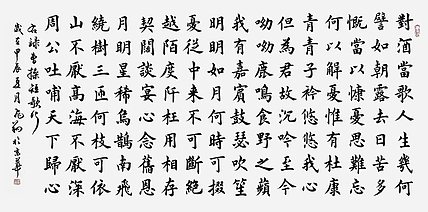 對酒當歌人生幾何
譬如朝露去日苦多
慨當以慷憂思難忘
何以解憂惟有杜康
青青子衿悠悠我心
但為君故沉吟至今
呦呦鹿鳴食野之蘋
我有嘉賓鼓瑟吹笙
明明如月何時可掇
憂從中來不可斷絕
越陌度阡枉用相存
契闊談宴心念舊恩
月明星稀烏鵲南飛
繞樹三匝何枝可依
山不厭高海不厭深
周公吐哺天下歸心
右錄曹操短歌行
歲在甲辰夏月於京華